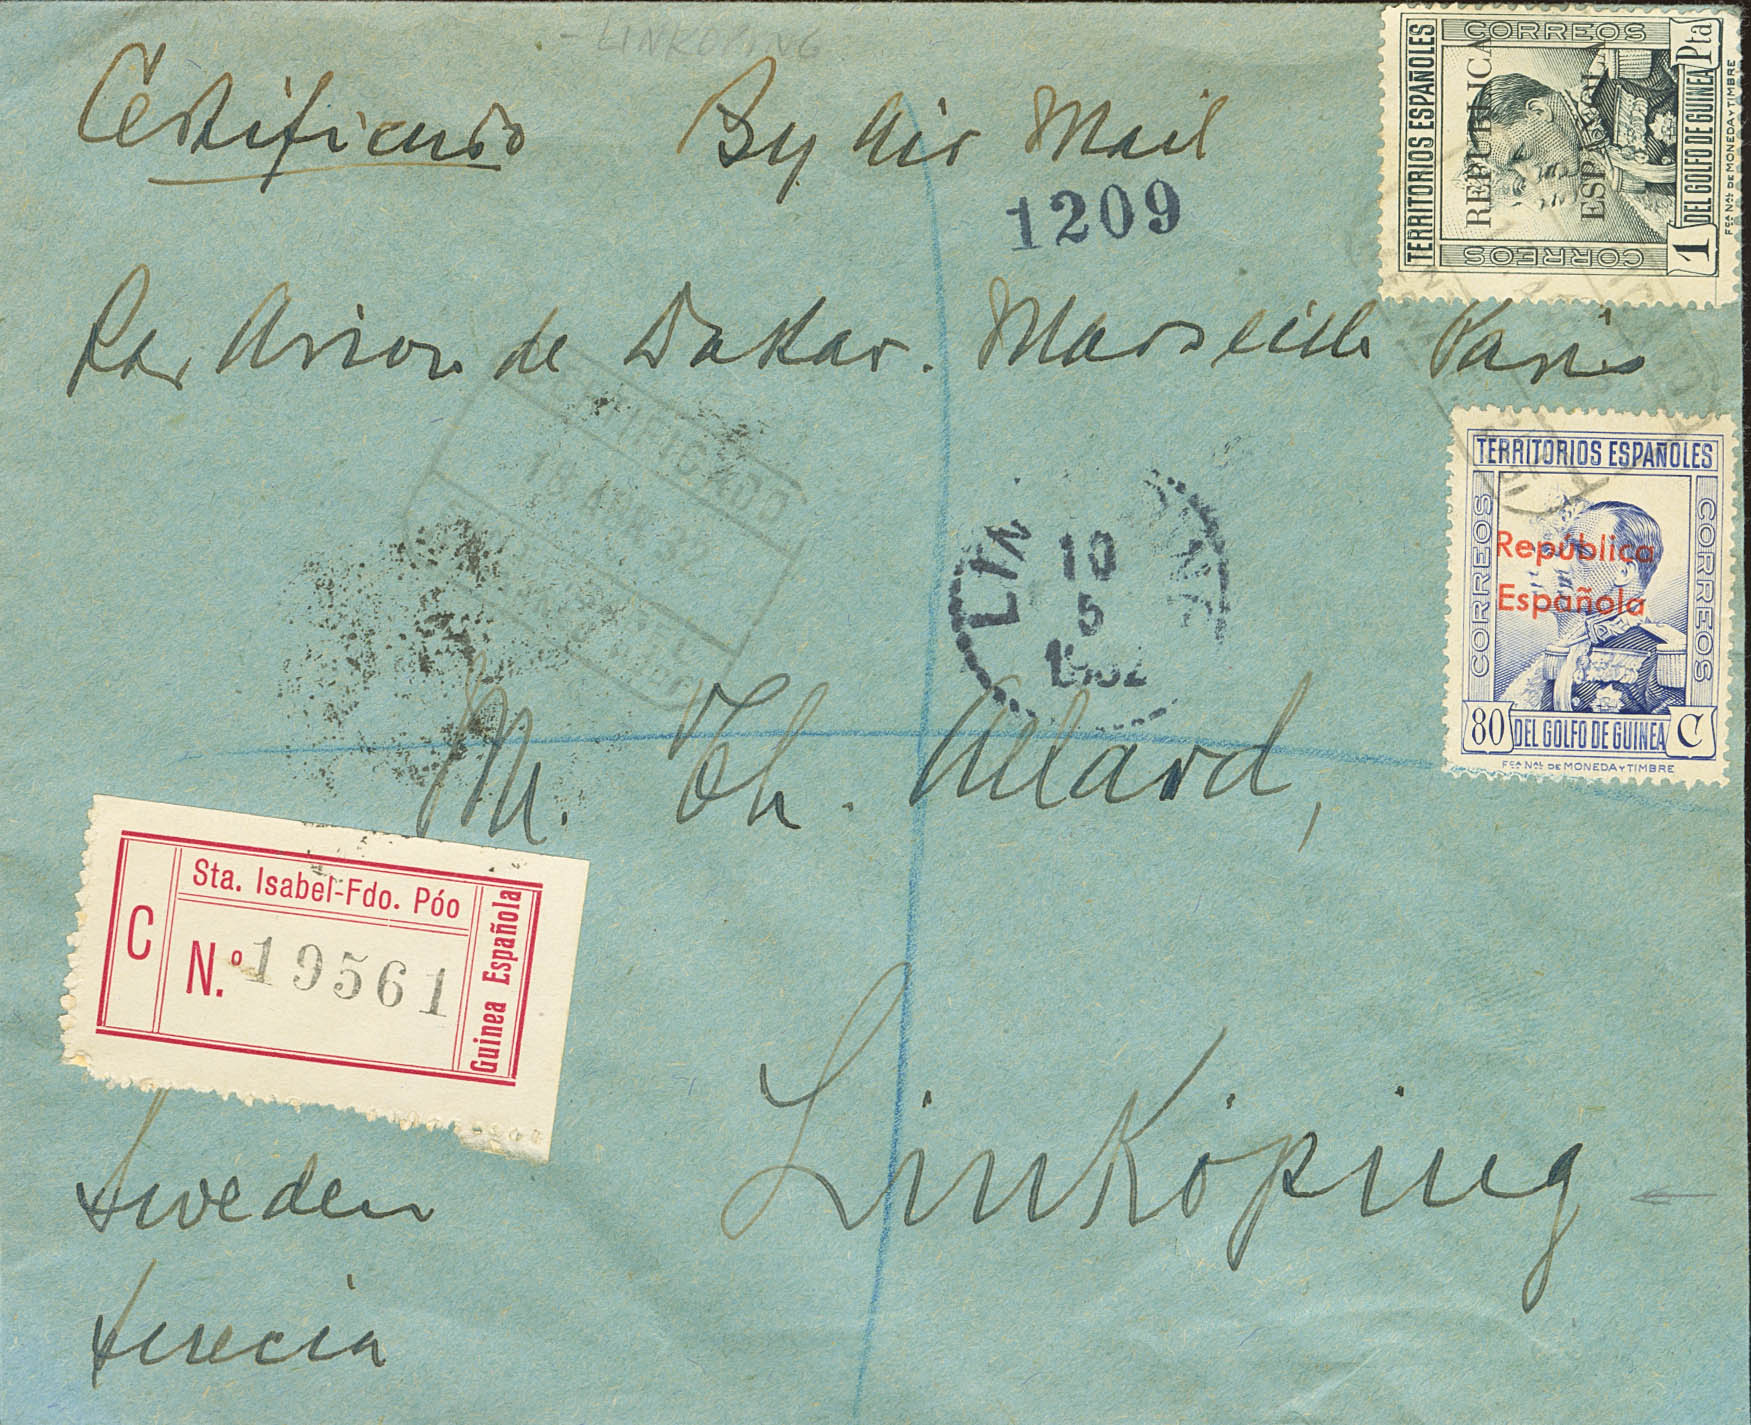 - LINKOPING
Certificado By Air Mail
1209
Par Avion de Dakar. Marseille Paris
CORREOS
TERRITORIOS ESPAÑOLES
REPUBLICA
ESPAÑOLA
CORREOS
1 DEL GOLFO DE GUINEA Pta
FCA NAL DE MONEDA Y TIMBRE
TERRITORIOS ESPAÑOLES
CORREOS
CORREOS
República
Española
80 DEL GOLFO DE GUINEA C
FCA NAL DE MONEDA Y TIMBRE
CERTIFICADO
18 ABR 32
LIN
10
5
1932
M. Th. Allard,
Sta. Isabel-Fdo. Póo
C
N.º 19561
Guinea Española
Linköping
Sweden
Suecia